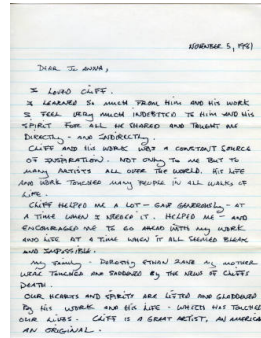 NOVEMBER 5, 1981
DEAR JO ANNA,
I LOVED CLIFF.
I LEARNED SO MUCH FROM HIM AND HIS WORK
I FEEL VERY MUCH INDEBTED TO HIM AND HIS
SPIRIT FOR ALL HE SHARED AND TAUGHT ME
DIRECTLY - AND INDIRECTLY.
CLIFF AND HIS WORK WAS A CONSTANT SOURCE
OF INSPIRATION. NOT ONLY TO ME BUT TO
MANY ARTISTS ALL OVER THE WORLD. HIS LIFE
AND WORK TOUCHED MANY PEOPLE IN ALL WALKS OF
LIFE.
CLIFF HELPED ME A LOT - GAVE GENEROUSLY - AT
A TIME WHEN I NEEDED IT. HELPED ME - AND
ENCOURAGED ME TO GO AHEAD WITH MY WORK
AND LIFE AT A TIME WHEN IT ALL SEEMED BLEAK
AND IMPOSSIBLE.
MY FAMILY - DOROTHY ETHAN ZANE MY MOTHER
WERE TOUCHED AND SADDENED BY THE NEWS OF CLIFFS
DEATH.
OUR HEARTS AND SPIRITS ARE LIFTED AND GLADDENED
BY HIS WORK AND HIS LIFE - WHICH HAS TOUCHED
OUR LIVES. CLIFF IS A GREAT ARTIST, AN AMERICAN
AN ORIGINAL.